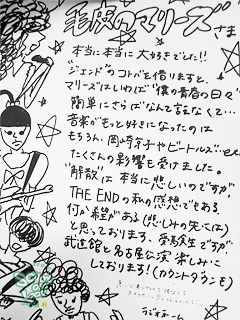 毛皮のマリーズさま
本当に本当に大好きでした!!
"ジェンド"のコトバを借りますと、
マリーズはしいわば"僕の青春の日々"
簡単にさらばなんて言えなくて…
音楽がもっと好きになったのは
もちろん、岡崎京子やビートルズ…etc
たくさんの影響を受けました。
"解散"は本当に悲しいのですが
THE ENDの私の感想でもある、
何か希望がある(悲しみの先には)
と思っております、受験生ですが
武道館と名古屋公演楽しみに
しております!(カウントダウンも)
ラジオネーム